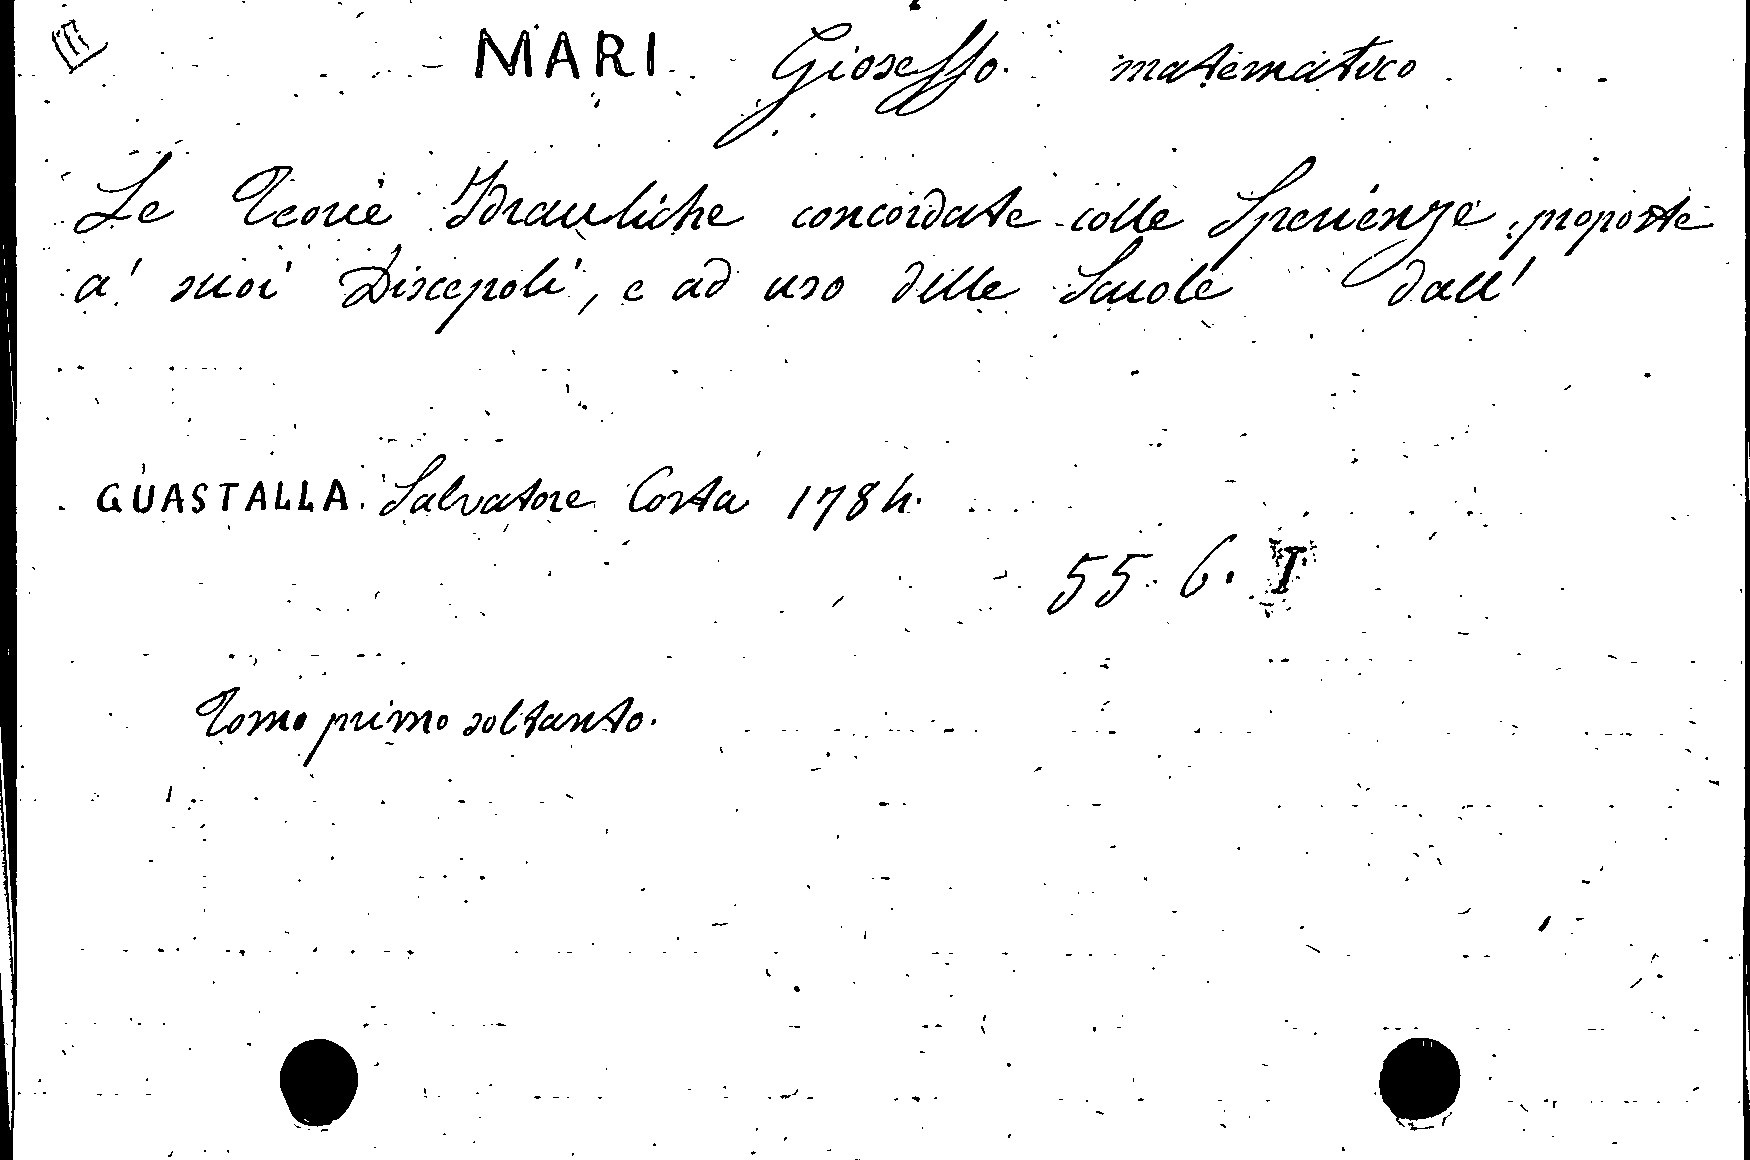 MARI Gioseffo matematico
Le Teorie Idrauliche concordate colle Sperienze, proposte
a' suoi Discepoli, e ad uso delle Scuole dall'
GUASTALLA. Salvatore Costa 1784.
55. 6. I
Tomo primo soltanto.